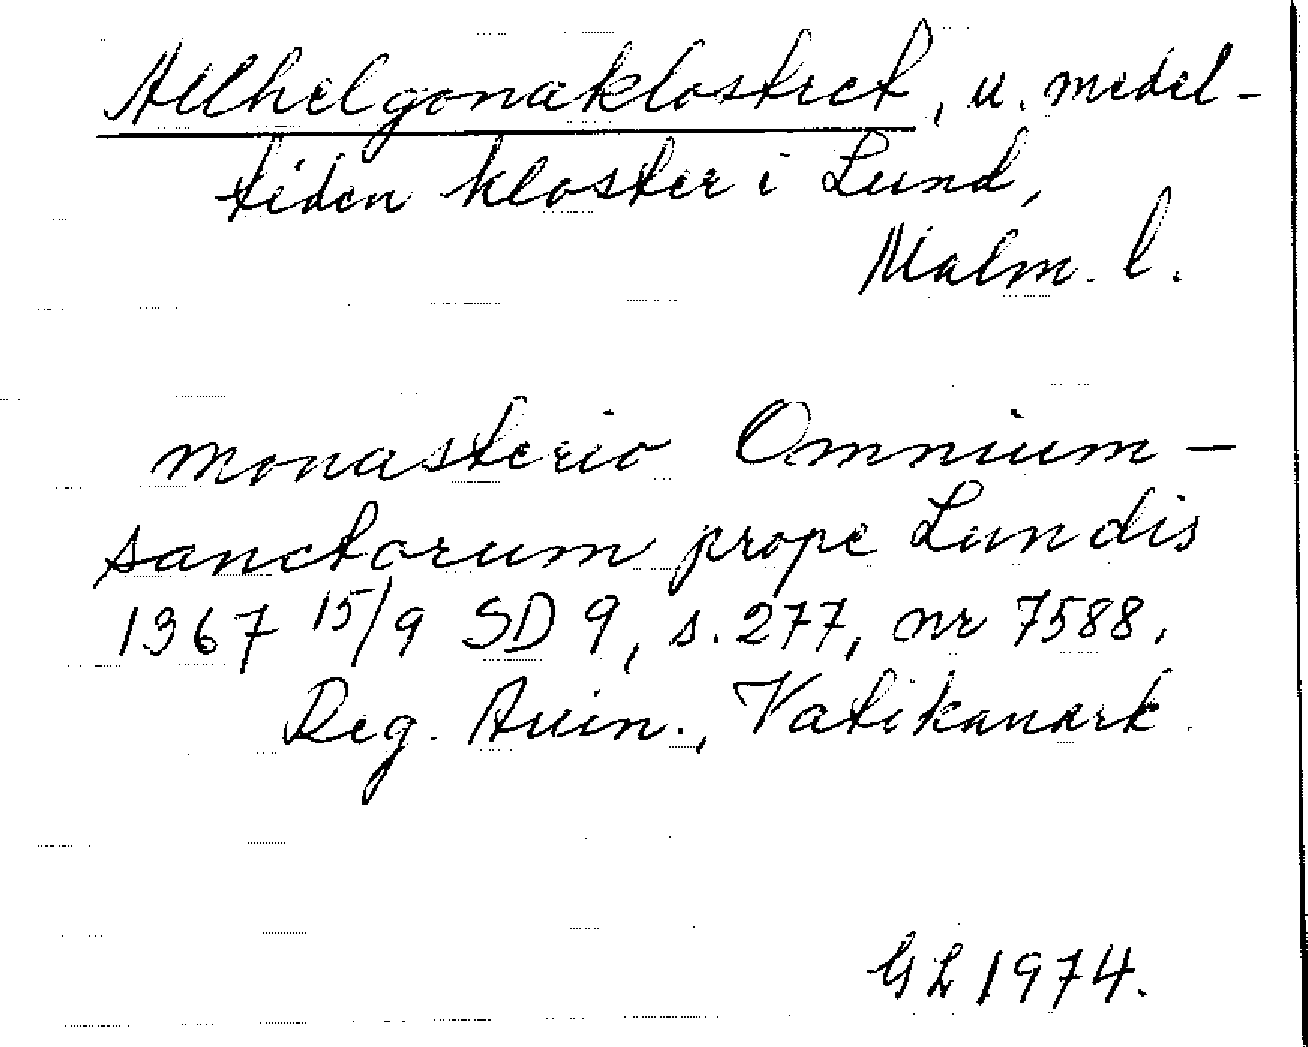 Allhelgonaklostret, u. medel-
tiden kloster i Lund,
Malm. l.
monasterio Omnium-
sanctorum prope Lundis
1367 15/9 SD 9, s. 277, nr 7588.
Reg. Avin., Vatikanark.
GL 1974.